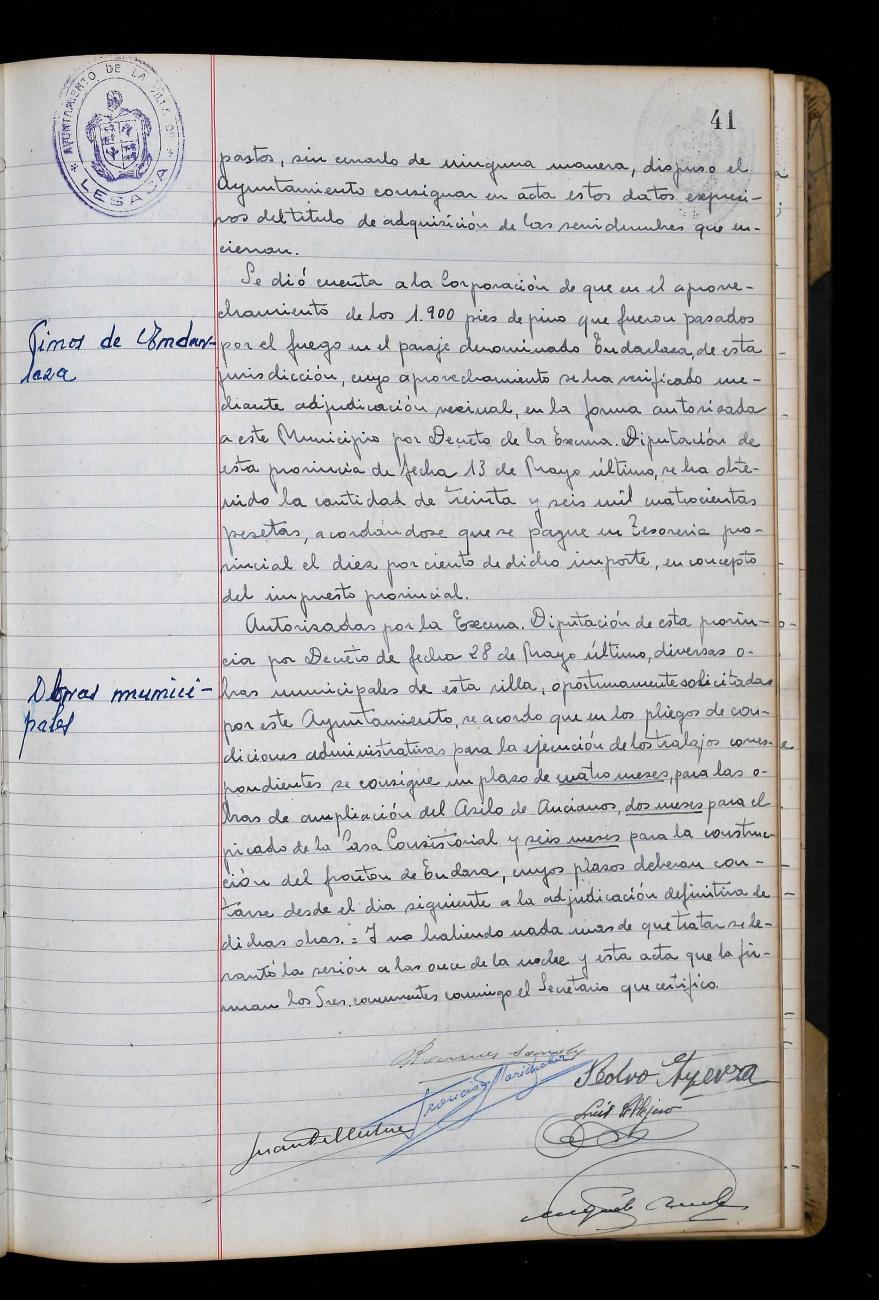 AYUNTAMIENTO DE LA VILLA DE
* LESACA *
41
pastos, sin cerrarlo de ninguna manera, dispuso el
Ayuntamiento consignar en acta estos datos expresi-
vos del titulo de adquisición de las servidumbres que en-
cierran.
Pinos de Endar-
laza
Se dió cuenta a la Corporación de que en el aprove-
chamiento de los 1.900 pies de pino que fueron pasados
por el fuego en el paraje denominado Endarlaza, de esta
jurisdicción, cuyo aprovechamiento se ha verificado me-
diante adjudicación vecinal, en la forma autorizada
a este Municipio por Decreto de la Excma. Diputación de
esta provincia de fecha 13 de Mayo último, se ha obte-
nido la cantidad de treinta y seis mil cuatrocientas
pesetas, acordándose que se pague en Tesoreria pro-
vincial el diez por ciento de dicho importe, en concepto
del impuesto provincial.
Obras munici-
pales
Autorizadas por la Excma. Diputación de esta provin-
cia por Decreto de fecha 28 de Mayo último, diversas o-
bras municipales de esta villa, oportunamente solicitadas
por este Ayuntamiento, se acordo que en los pliegos de con-
diciones administrativas para la ejecución de los trabajos corres-
pondientes se consigne un plazo de cuatro meses, para las o-
bras de ampliación del Asilo de Ancianos, dos meses para el
picado de la Casa Consistorial y seis meses para la construc-
ción del frontón de Endara, cuyos plazos deberan con-
tarse desde el dia siguiente a la adjudicación definitiva de
dichas obras. = Y no habiendo nada mas de que tratar se le-
vantó la sesión a las once de la noche y esta acta que la fir-
man los Sres. concurrentes conmigo el Secretario que certifico.
Pedro Apeza
Luis
Juan
Miguel